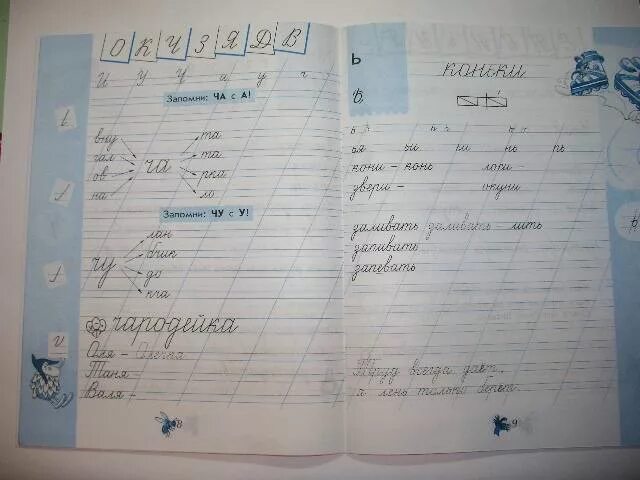 О К Ч З Я Д В
И У У и у г
Запомни: ЧА с А!
вну
гал
ов
на
ча
та
та
рка
ло
Запомни: ЧУ с У!
чу
лан
бчик
до
кча
чародейка
Оля – Олечка
Таня –
Валя –
8
ь
коньки
ь
ья чи ри нь рь
кони – конь лоси –
звери – окуни
заливать заливать – лить
запивать
запевать
Труд всегда даёт,
а лень только берёт.
9